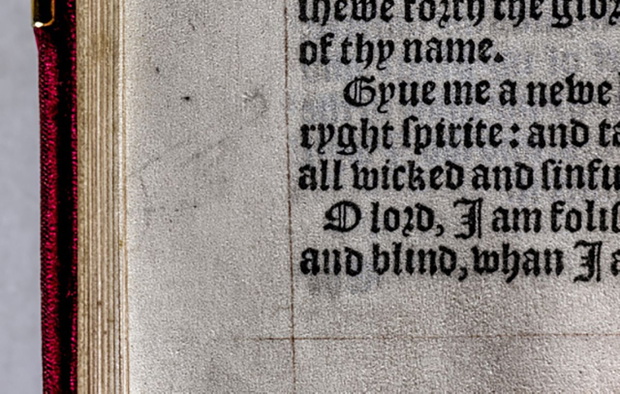 thewe forth the glor
of thy name.
Gyue me a newe
ryght spirite: and ta
all wicked and sinfu
O lord, I am folis
and blind, whan I a